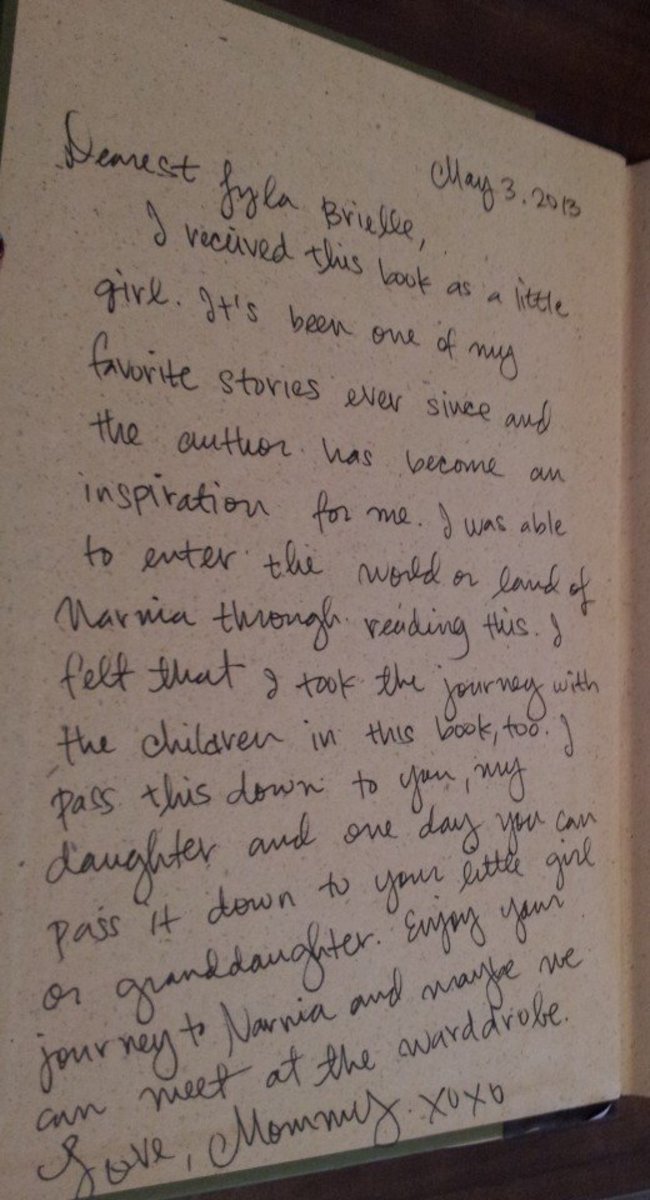 May 3. 2013
Dearest Lyla Brielle,
I received this book as a little
girl. It's been one of my
favorite stories ever since and
the author has become an
inspiration for me. I was able
to enter the world or land of
Narnia through reading this. I
felt that I took the journey with
the children in this book, too. I
pass this down to you, my
daughter and one day you can
pass it down to your little girl
or granddaughter. Enjoy your
journey to Narnia and maybe we
can meet at the warddrobe.
Love, Mommy. xoxo